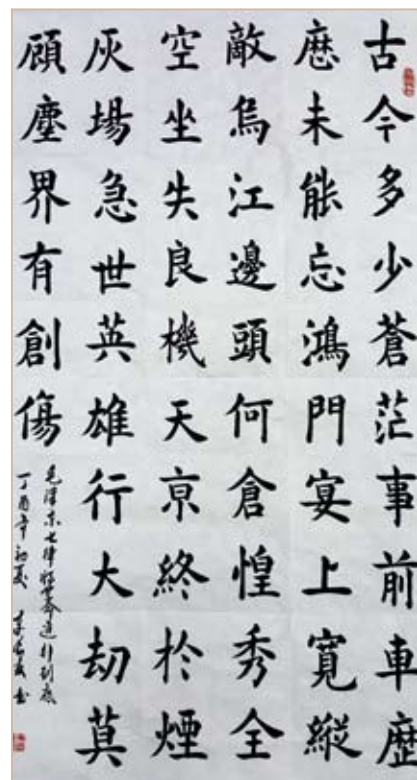 古今多少蒼茫事前車歷
歷未能忘鴻門宴上寬縱
敵烏江邊頭何倉惶秀全
空坐失良機天京終於煙
灰場急世英雄行大劫莫
顧塵界有創傷
毛澤東七律將革命進行到底
丁酉年初夏 書